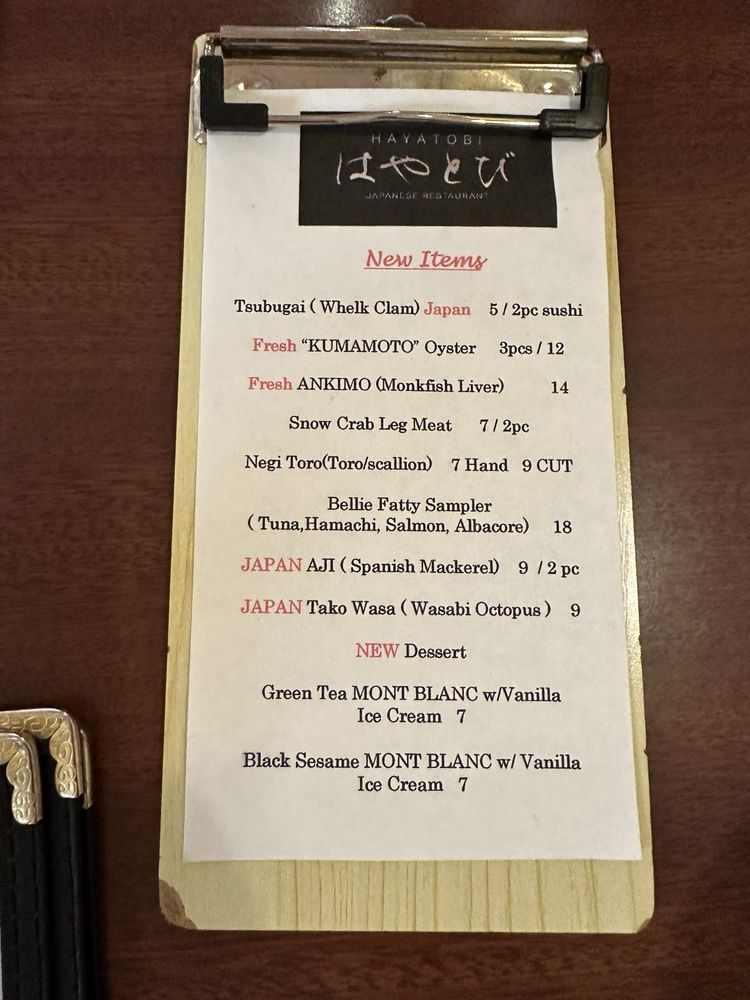 HAYATOBI
はやとび
JAPANESE RESTAURANT
New Items
Tsubugai ( Whelk Clam) Japan 5 / 2pc sushi
Fresh “KUMAMOTO” Oyster 3pcs / 12
Fresh ANKIMO (Monkfish Liver) 14
Snow Crab Leg Meat 7 / 2pc
Negi Toro(Toro/scallion) 7 Hand 9 CUT
Bellie Fatty Sampler
( Tuna,Hamachi, Salmon, Albacore) 18
JAPAN AJI ( Spanish Mackerel) 9 / 2 pc
JAPAN Tako Wasa ( Wasabi Octopus ) 9
NEW Dessert
Green Tea MONT BLANC w/Vanilla
Ice Cream 7
Black Sesame MONT BLANC w/ Vanilla
Ice Cream 7